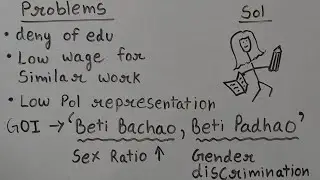 Problems
Sol
• deny of edu
• Low wage for
Similar work
• Low Pol representation
GOI → 'Beti Bachao, Beti Padhao'
Sex Ratio ↑
Gender
discrimination